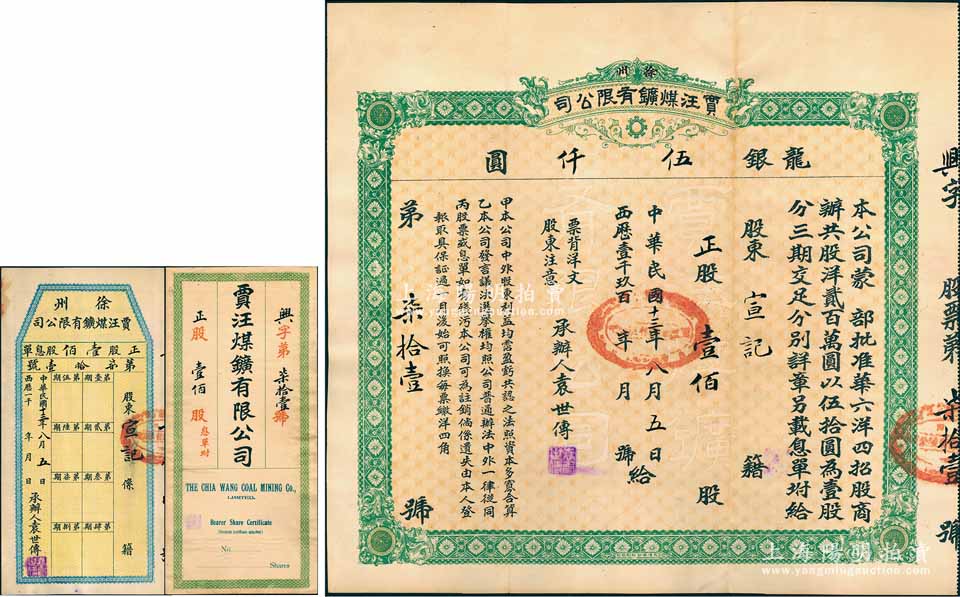 徐州
賈汪煤鑛有限公司
正股壹佰股息單
第柒拾壹號
股東 宣記 條 籍
第壹期
第貳期
第叁期
第肆期
第伍期
第陸期
第柒期
第捌期
中華民國十三年八月五日
西歷一千 年 月 日
承辦人袁世傳
興字第 柒拾壹號
賈汪煤鑛有限公司
正股 壹佰 股 息單坿
THE CHIA WANG COAL MINING Co.,
(LIMITED).
Bearer Share Certificate
No.
Shares
徐州
賈汪煤鑛有限公司
龍銀伍仟圓
本公司蒙 部批准華六洋四招股商
辦共股洋貳百萬圓以伍拾圓為壹股
分三期交足分別詳章另載息單坿給
股東 宣記 籍
正股 壹佰 股
中華民國十三年八月五日給
西歷壹千玖百 年 月 號
承辦人袁世傳
票背洋文
股東注意
甲本公司中外股東利益均霑盈虧共認之法照資本多寡合算
乙本公司發言議決選舉權均照公司普通辦法中外一律從同
丙股票或息單如 污本公司可為註銷倘係遺失由本人登
報取具保証過 日後始可照換每票繳洋四角
第柒拾壹號
興字 股票第 柒拾壹 號
上海陽明拍賣
www.yangmingauction.com